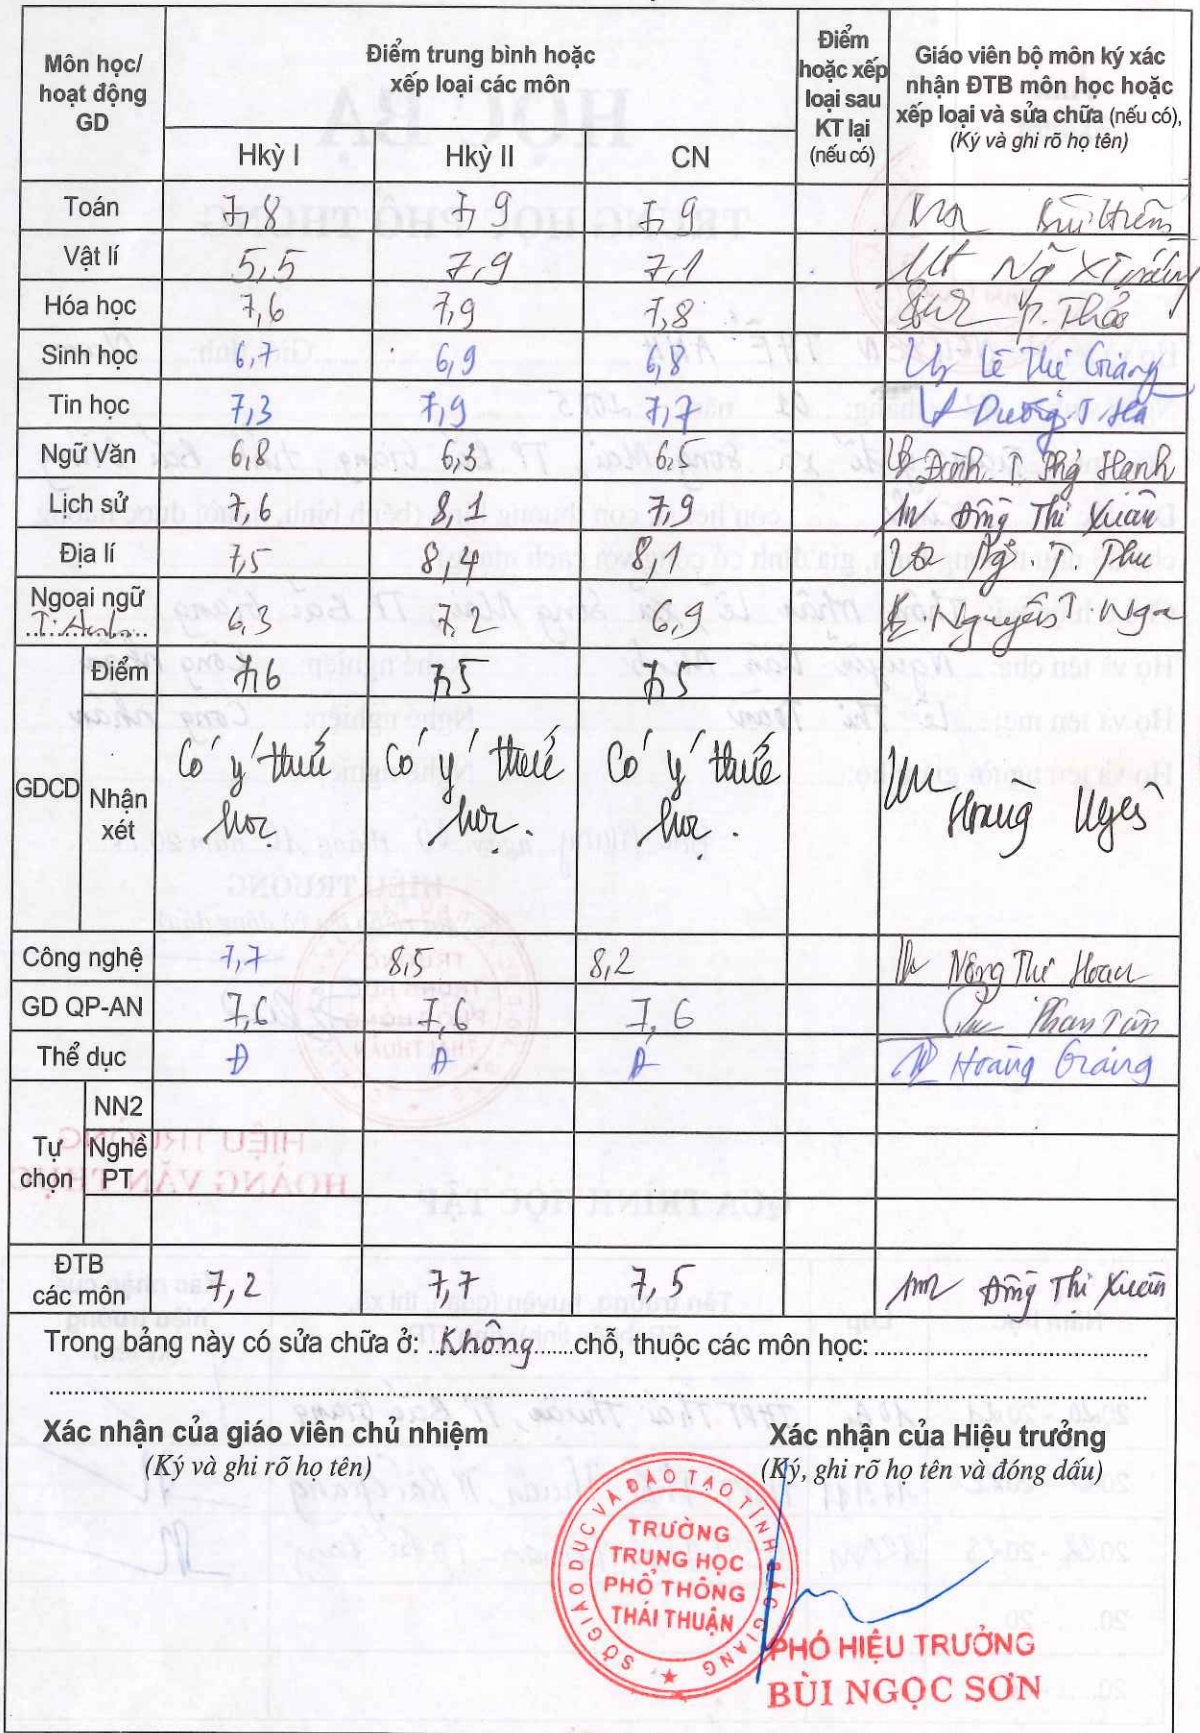 Môn học/ hoạt động GD | Điểm trung bình hoặc xếp loại các môn | Điểm hoặc xếp loại sau KT lại (nếu có) | Giáo viên bộ môn ký xác nhận ĐTB môn học hoặc xếp loại và sửa chữa (nếu có), (Ký và ghi rõ họ tên)
Hkỳ I | Hkỳ II | CN
Toán | 7,8 | 7,9 | 7,9 | Bùi Hiếm
Vật lí | 5,5 | 7,9 | 7,1 | Ngô X Trường
Hóa học | 7,6 | 7,9 | 7,8 | P. Thảo
Sinh học | 6,7 | 6,9 | 6,8 | Lê Thị Giang
Tin học | 7,3 | 7,9 | 7,7 | Dương T. Hà
Ngữ Văn | 6,8 | 6,3 | 6,5 | Đinh. T. Hạnh
Lịch sử | 7,6 | 8,1 | 7,9 | Thị Xuân
Địa lí | 7,5 | 8,4 | 8,1 | Ng. T Thu
Ngoại ngữ T. Anh | 6,3 | 7,2 | 6,9 | Nguyễn T. Nga
GDCD | Điểm | 7,6 | 7,5 | 7,5
Nhận xét | Có ý thức học. | Có ý thức học. | Có ý thức học. | Hoàng
Công nghệ | 7,7 | 8,5 | 8,2 | Nông Thị Hoan
GD QP-AN | 7,6 | 7,6 | 7,6 | Phan Tân
Thể dục | Đ | Đ | Đ | Hoàng Giang
Tự chọn | NN2
Nghề PT
ĐTB các môn | 7,2 | 7,7 | 7,5 | Thị Xuân
Trong bảng này có sửa chữa ở: Không chỗ, thuộc các môn học:
Xác nhận của giáo viên chủ nhiệm
(Ký và ghi rõ họ tên)
Xác nhận của Hiệu trưởng
(Ký, ghi rõ họ tên và đóng dấu)
SỞ GIÁO DỤC VÀ ĐÀO TẠO TỈNH BẮC GIANG
TRƯỜNG
TRUNG HỌC
PHỔ THÔNG
THÁI THUẬN
PHÓ HIỆU TRƯỞNG
BÙI NGỌC SƠN